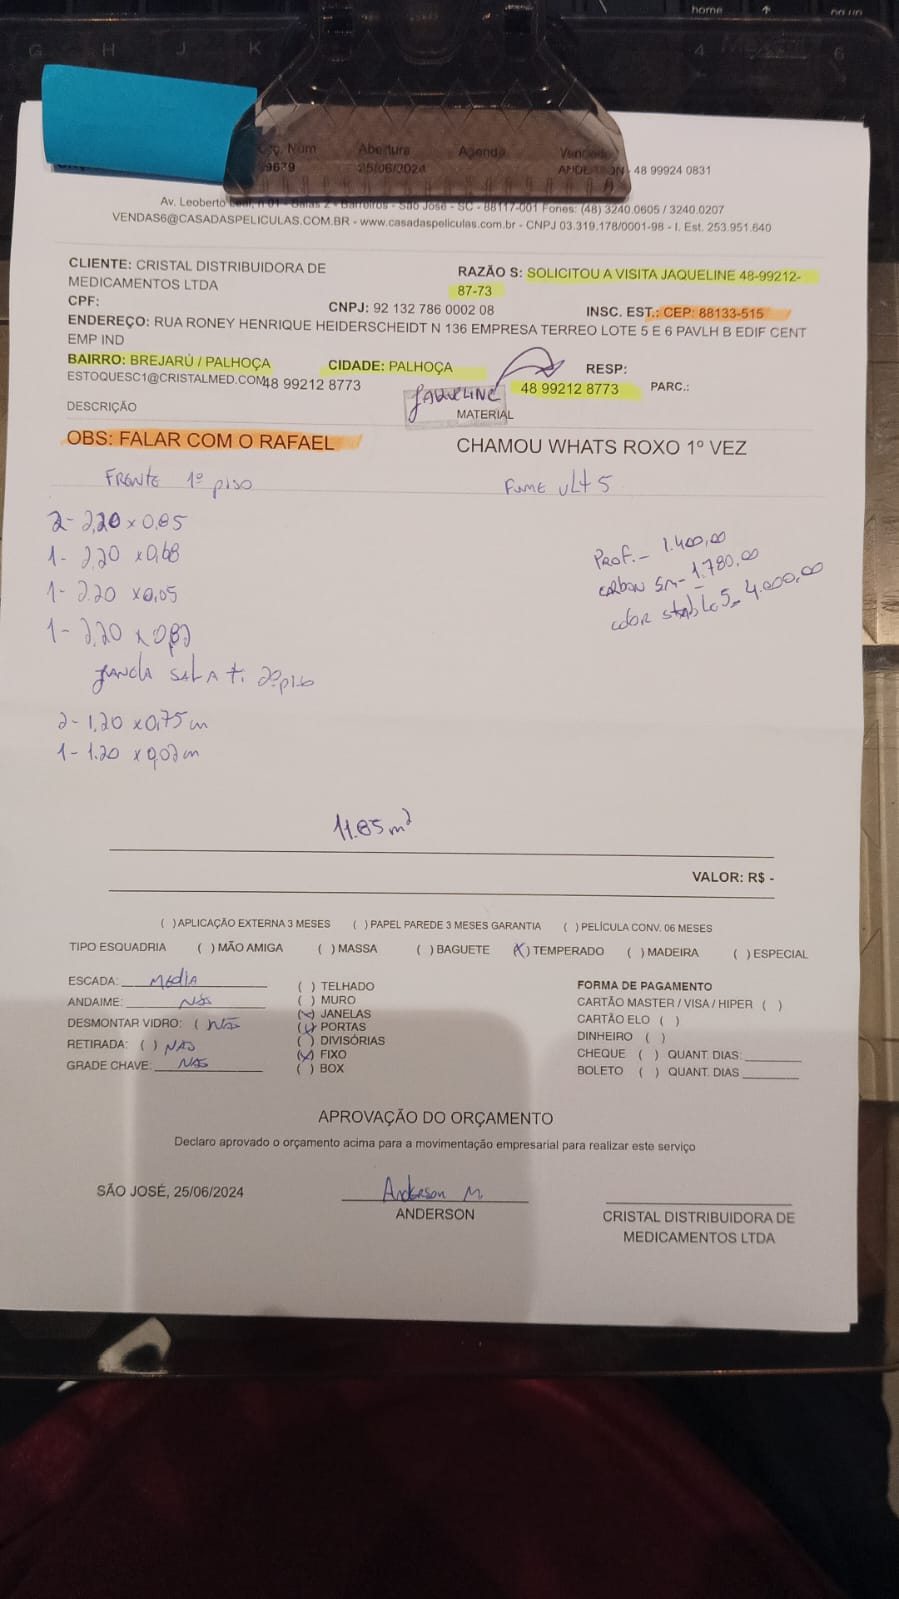 home
G H J K 4 6
Orç. Núm Abertura Agenda Vendedor
9639 25/06/2024 ANDERSON - 48 99924 0831
Av. Leoberto Leal, n 01 - Salas 2 - Barreiros - São José - SC - 88117-001 Fones: (48) 3240.0605 / 3240.0207
VENDAS6@CASADASPELICULAS.COM.BR - www.casadaspeliculas.com.br - CNPJ 03.319.178/0001-98 - I. Est. 253.951.640
CLIENTE: CRISTAL DISTRIBUIDORA DE MEDICAMENTOS LTDA
RAZÃO S: SOLICITOU A VISITA JAQUELINE 48-99212-87-73
CPF:
CNPJ: 92 132 786 0002 08
INSC. EST.: CEP: 88133-515
ENDEREÇO: RUA RONEY HENRIQUE HEIDERSCHEIDT N 136 EMPRESA TERREO LOTE 5 E 6 PAVLH B EDIF CENT
EMP IND
BAIRRO: BREJARÚ / PALHOÇA
CIDADE: PALHOÇA
RESP:
ESTOQUESC1@CRISTALMED.COM
48 99212 8773
JAQUELINE
48 99212 8773
PARC.:
DESCRIÇÃO
MATERIAL
OBS: FALAR COM O RAFAEL
CHAMOU WHATS ROXO 1º VEZ
FRENTE 1º piso
FUME ULT 5
2- 2,20 x 0,85
1- 2,20 x 0,68
1- 2.20 x 0,05
1- 2,20 x 0,82
JANELA SALA ti 2º piso
2- 1,20 x 0,75 cm
1- 1.20 x 0,02 cm
PROF. - 1.400,00
CARBON 5M - 1.780,00
COLOR stable 5 - 4.000,00
11.85 m²
VALOR: R$ -
( ) APLICAÇÃO EXTERNA 3 MESES ( ) PAPEL PAREDE 3 MESES GARANTIA ( ) PELÍCULA CONV. 06 MESES
TIPO ESQUADRIA ( ) MÃO AMIGA ( ) MASSA ( ) BAGUETE (X) TEMPERADO ( ) MADEIRA ( ) ESPECIAL
ESCADA: MédIA
ANDAIME: Não
DESMONTAR VIDRO: ( Não
RETIRADA: ( ) NÃO
GRADE CHAVE: NÃO
( ) TELHADO
( ) MURO
(X) JANELAS
(X) PORTAS
( ) DIVISÓRIAS
(X) FIXO
( ) BOX
FORMA DE PAGAMENTO
CARTÃO MASTER / VISA / HIPER ( )
CARTÃO ELO ( )
DINHEIRO ( )
CHEQUE ( ) QUANT. DIAS:
BOLETO ( ) QUANT. DIAS
APROVAÇÃO DO ORÇAMENTO
Declaro aprovado o orçamento acima para a movimentação empresarial para realizar este serviço
SÃO JOSÉ, 25/06/2024
Anderson M.
ANDERSON
CRISTAL DISTRIBUIDORA DE
MEDICAMENTOS LTDA